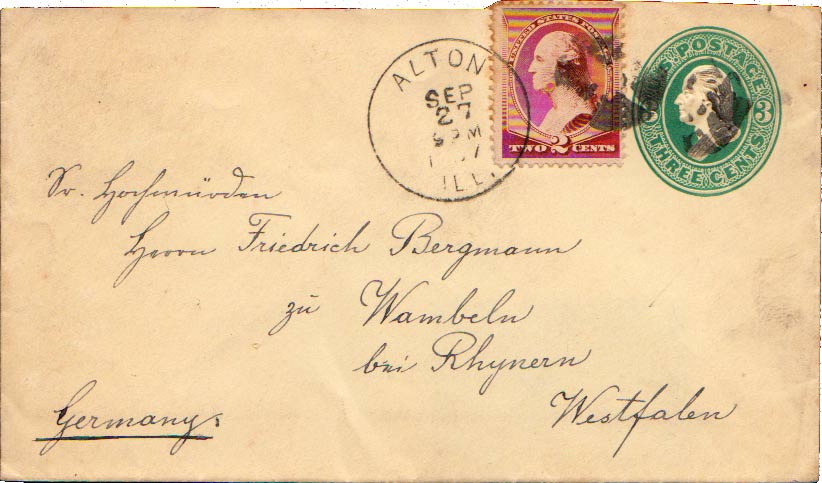 ALTON
SEP
27
ILL.
UNITED STATES POSTAGE
TWO 2 CENTS
U.S. POSTAGE
3 3
THREE CENTS
Sr. Hochwürden
Herrn Friedrich Bergmann
zu Wambeln
bei Rhynern
Westfalen
Germany.